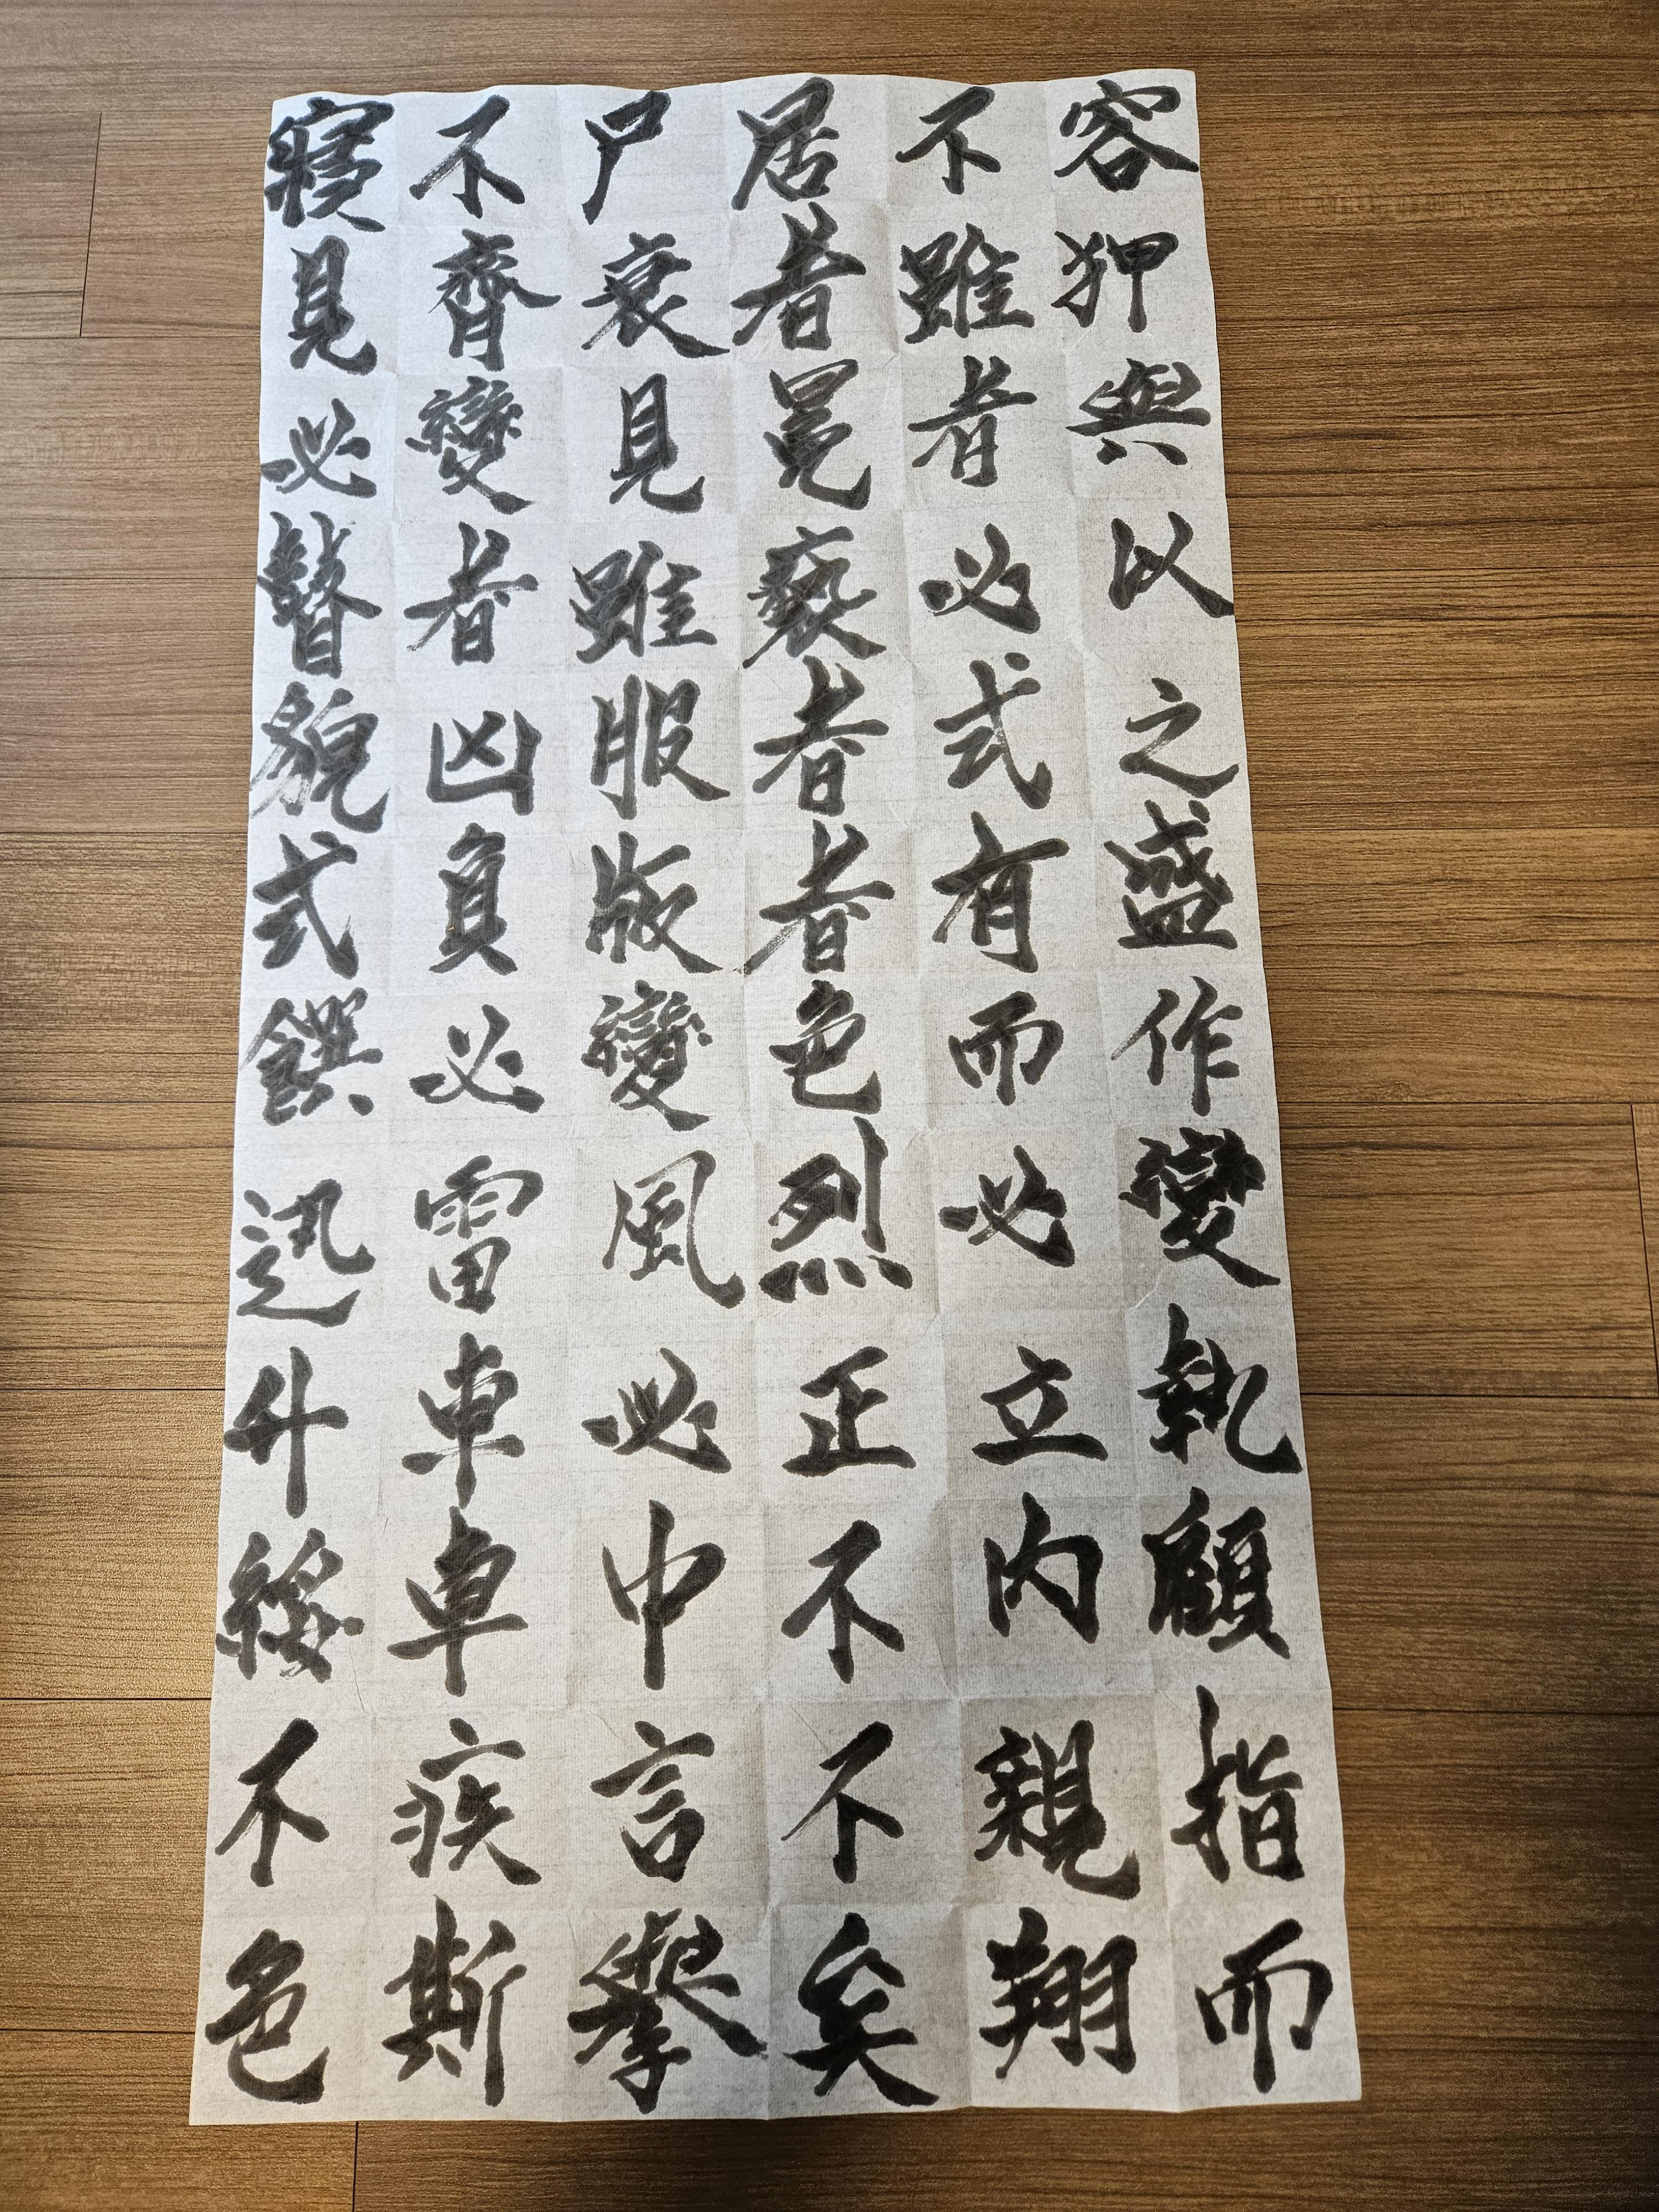 寢不尸居不容
見齊衰者雖狎
必變見冕者與
瞽者雖褻必以
貌凶服者式之
式負版者有盛
饌必變色而作
迅雷風烈必變
升車必正立執
綏車中不内顧
不疾言不親指
色斯擧矣翔而